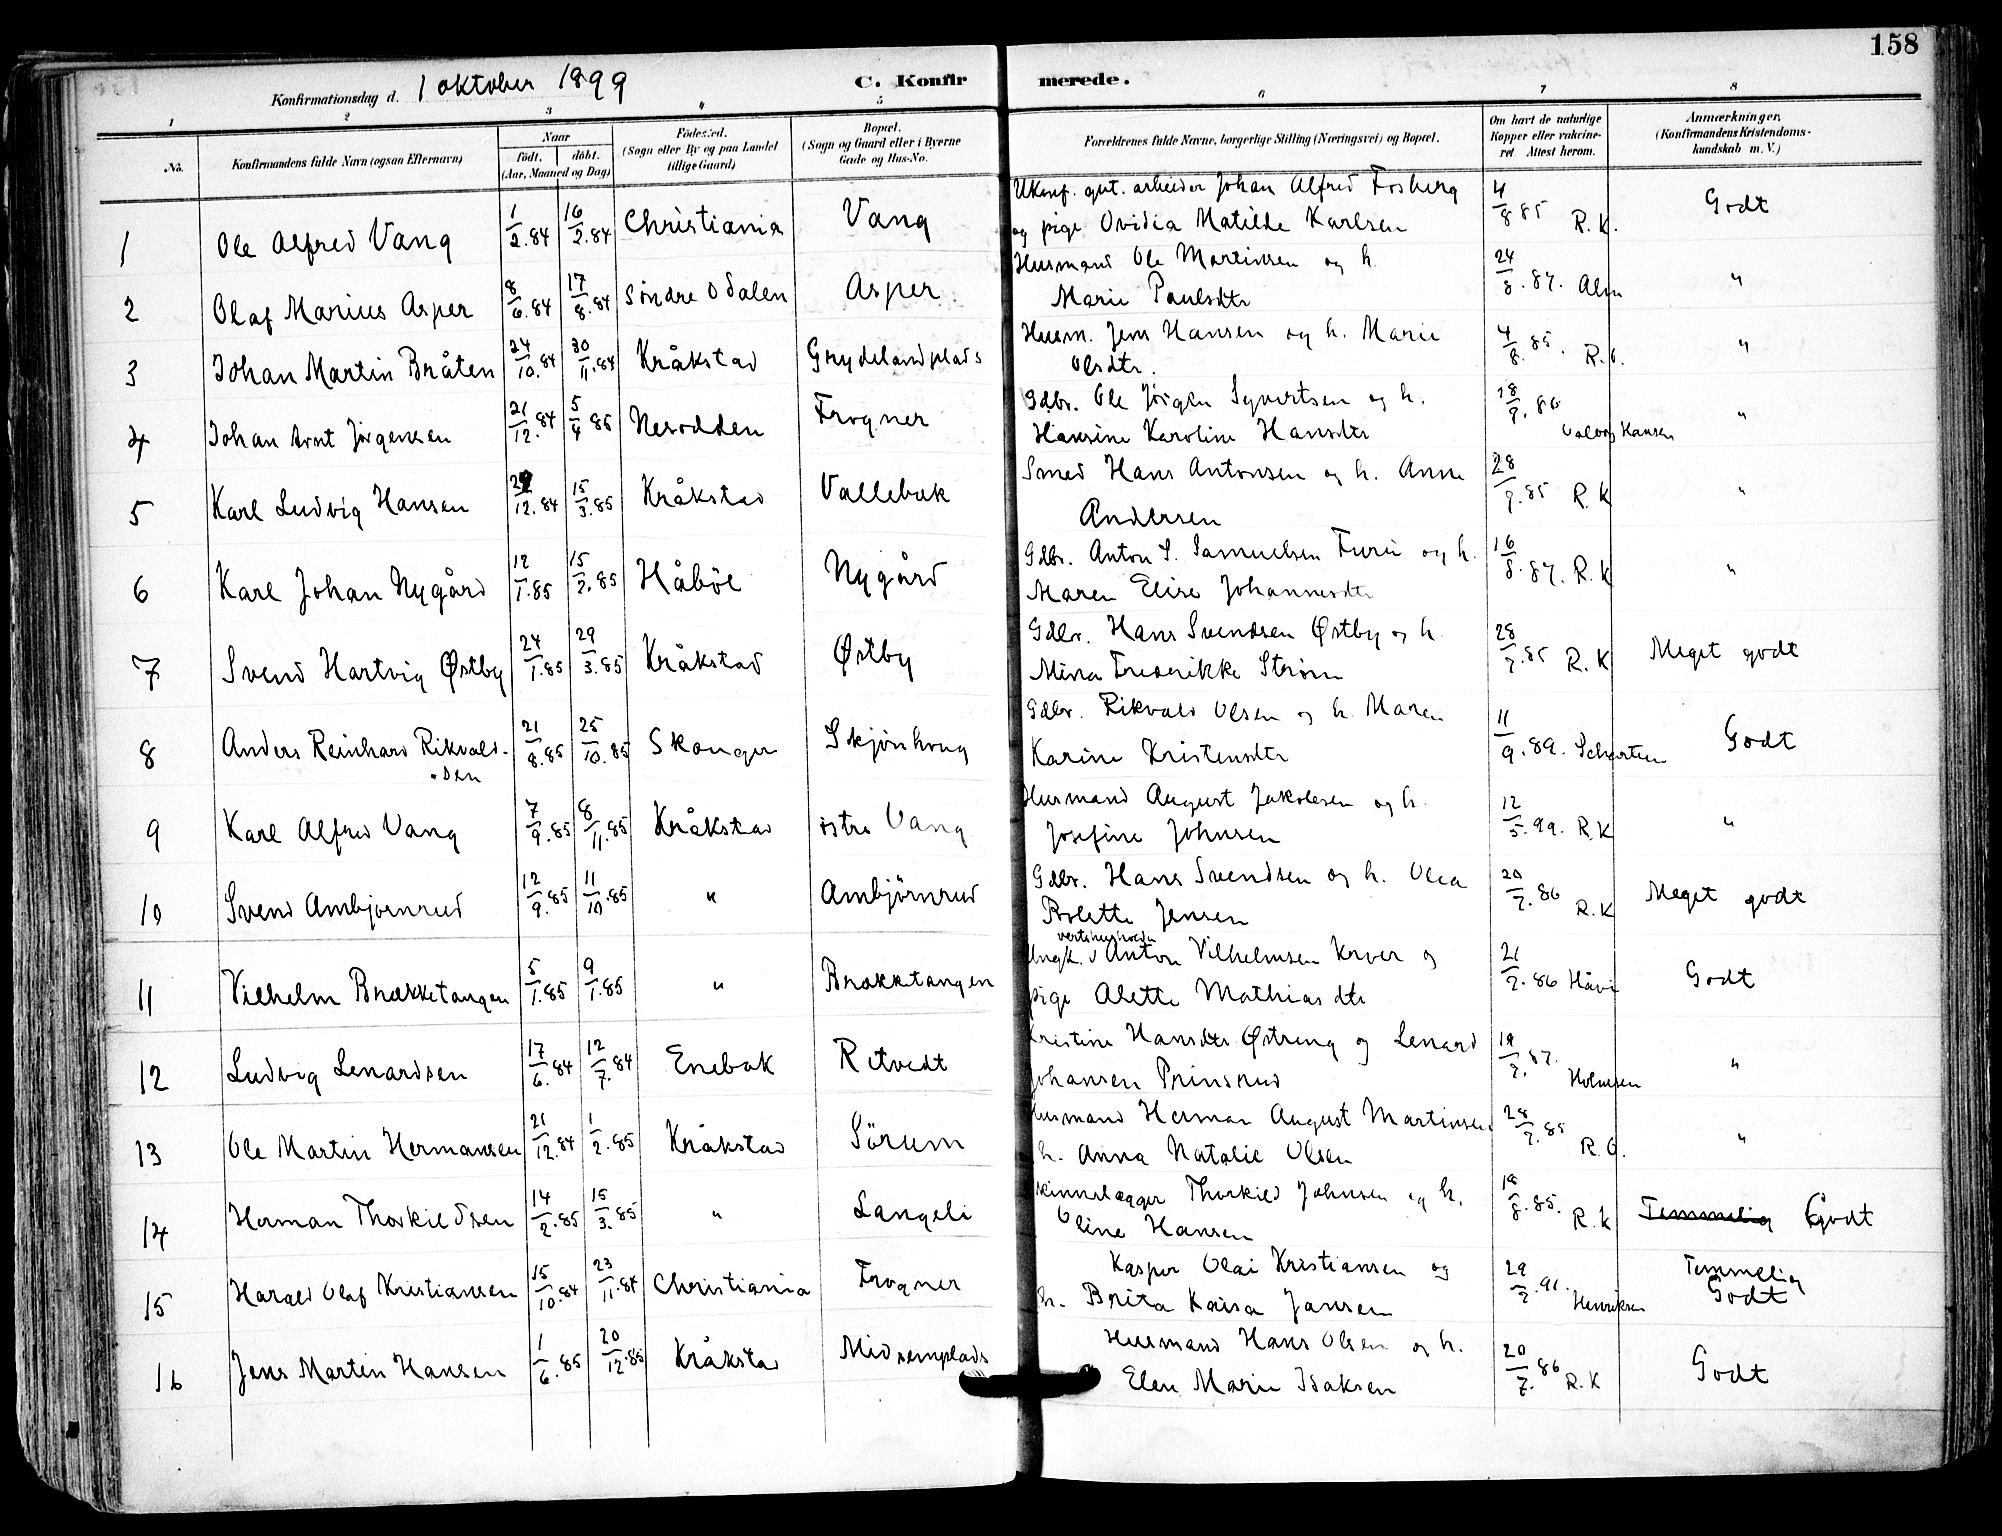 158
Konfirmationsdag d. 1 oktober 1899 C. Konfirmerede.
1 2 3 4 5 6 7 8
No. Konfirmandens fulde Navn (ogsaa Efternavn) Naar født. døbt. (Aar, Maaned og Dag) Fødested. (Sogn eller By og paa Landet tillige Gaard) Bopæl. (Sogn og Gaard eller i Byerne Gade og Hus-No. Forældrenes fulde Navne, borgerlige Stilling (Næringsvei) og Bopæl. Om havt de naturlige Kopper eller vakcineret. Attest herom. Anmærkninger. (Konfirmandens Kristendomskundskab m. V.)
1 Ole Alfred Vang 1/2.84 16/2.84 Christiania Vang Ukonf. gut. arbeider Johan Alfred Fosberg og pige Ovidia Matilde Karlsen 4/8 85 R.K. Godt
2 Olaf Marius Asper 8/6.84 17/8.84 Søndre Odalen Asper Husmand Ole Martinsen og h. Marie Paulsdtr 24/8.87. Alm "
3 Johan Martin Bråten 24/10.84 30/11.84 Kråkstad Grydelandplads Husm. Jens Hansen og h. Marie Olsdtr. 4/8.85. R.O. "
4 Johan Arnt Jørgensen 21/12.84 5/4 85 Nesodden Frogner Gdbr. Ole Jørgen Syvertsen og h. Hansine Karoline Hansdtr 18/9.86 Hansen "
5 Karl Ludvig Hansen 12.84 15/3.85 Kråkstad Vallebæk Smed Hans Antonsen og h. Anne Andersen 28/9.85 R.K "
6 Karl Johan Nygård 12/1.85 15/2.85 Håbøl Nygård Gdbr. Anton S. Samuelsen Furu og h. Maren Elise Johannesdtr 16/8.87. R.K "
7 Svend Hartvig Østby 24/1.85 29/3.85 Kråkstad Østby Gdbr. Hans Svendsen Østby og h. Mina Frederikke Strøm 28/7.85 R.K Meget godt
8 Anders Reinhard Rikvalds-sen 21/8.85 25/10.85 Skonger Skjønhoug Gdbr. Rikvald Olsen og h. Maren Karine Kristensdtr 11/9.89. Scharten Godt
9 Karl Alfred Vang 7/9.85 8/11.85 Kråkstad østre Vang Husmand August Jakobsen og h. Josefine Johnsen 12/5.99. R.K "
10 Svend Ambjørnrud 12/9.85 11/10.85 " Ambjørnrud Gdbr. Hans Svendsen og h. Olea Bolette Jensen 20/7.86 R.K Meget godt
11 Vilhelm Brækketangen 5/1.85 9/1.85 " Brækketangen Ungk. Anton Vilhelmsen Krver og pige Alette Mathiasdtr 21/7.86 Håvi Godt
12 Ludvig Lenardsen 17/6.84 12/7.84 Enebak Retvedt Kristine Hansdtr Østreng og Lenard Johansen Prinsrud 19/7.87. Holmsen "
13 Ole Martin Hermansen 21/12.84 1/2.85 Kråkstad Sørum Husmand Herman August Martinsen h. Anna Natalie Olsen 28/7.85 R.O. "
14 Herman Thorkildsen 14/2.85 15/3.85 " Langeli Skinnelægger Thorkild Johnsen og h. Oline Hansen 18/8.85. R.K Temmelig Godt
15 Harald Olaf Kristiansen 15/10.84 23/11.84 Christiania Frogner Kasper Olai Kristiansen og h. Brita Kaisa Jansen 29/7.91. Henriksen Temmelig Godt
16 Jens Martin Hansen 1/6.85 20/12.85 Kråkstad Midsemplads Husmand Hans Olsen og h. Elen Marie Isaksen 20/7.86 R.K Godt